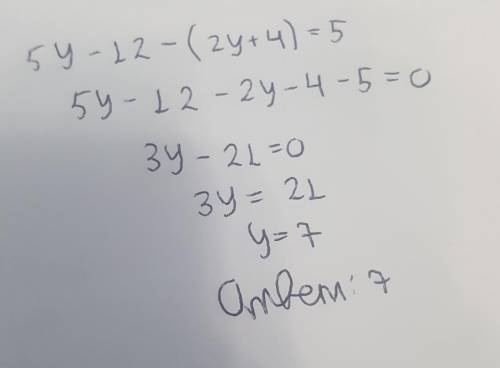 5y - 12 - (2y+4) = 5
5y - 12 - 2y - 4 - 5 = 0
3y - 21 = 0
3y = 21
y = 7
Ответ: 7